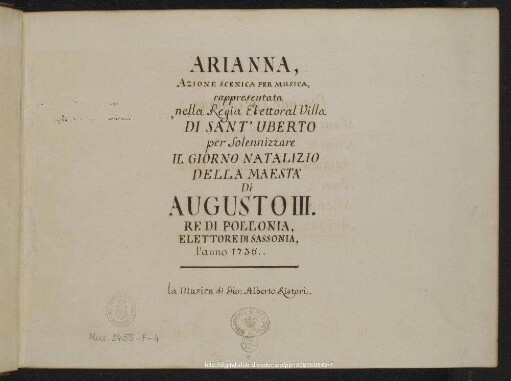 ARIANNA,
AZIONE SCENICA PER MUSICA,
rappresentata
nella Regia Elettoral Villa
DI SANT' UBERTO
per Solennizzare
IL GIORNO NATALIZIO
DELLA MAESTA'
DI
AUGUSTO III.
RE DI POLLONIA,
ELETTORE DI SASSONIA,
l'anno 1736..
La Musica di Gio: Alberto Ristori..
Mus. 2455-F-4